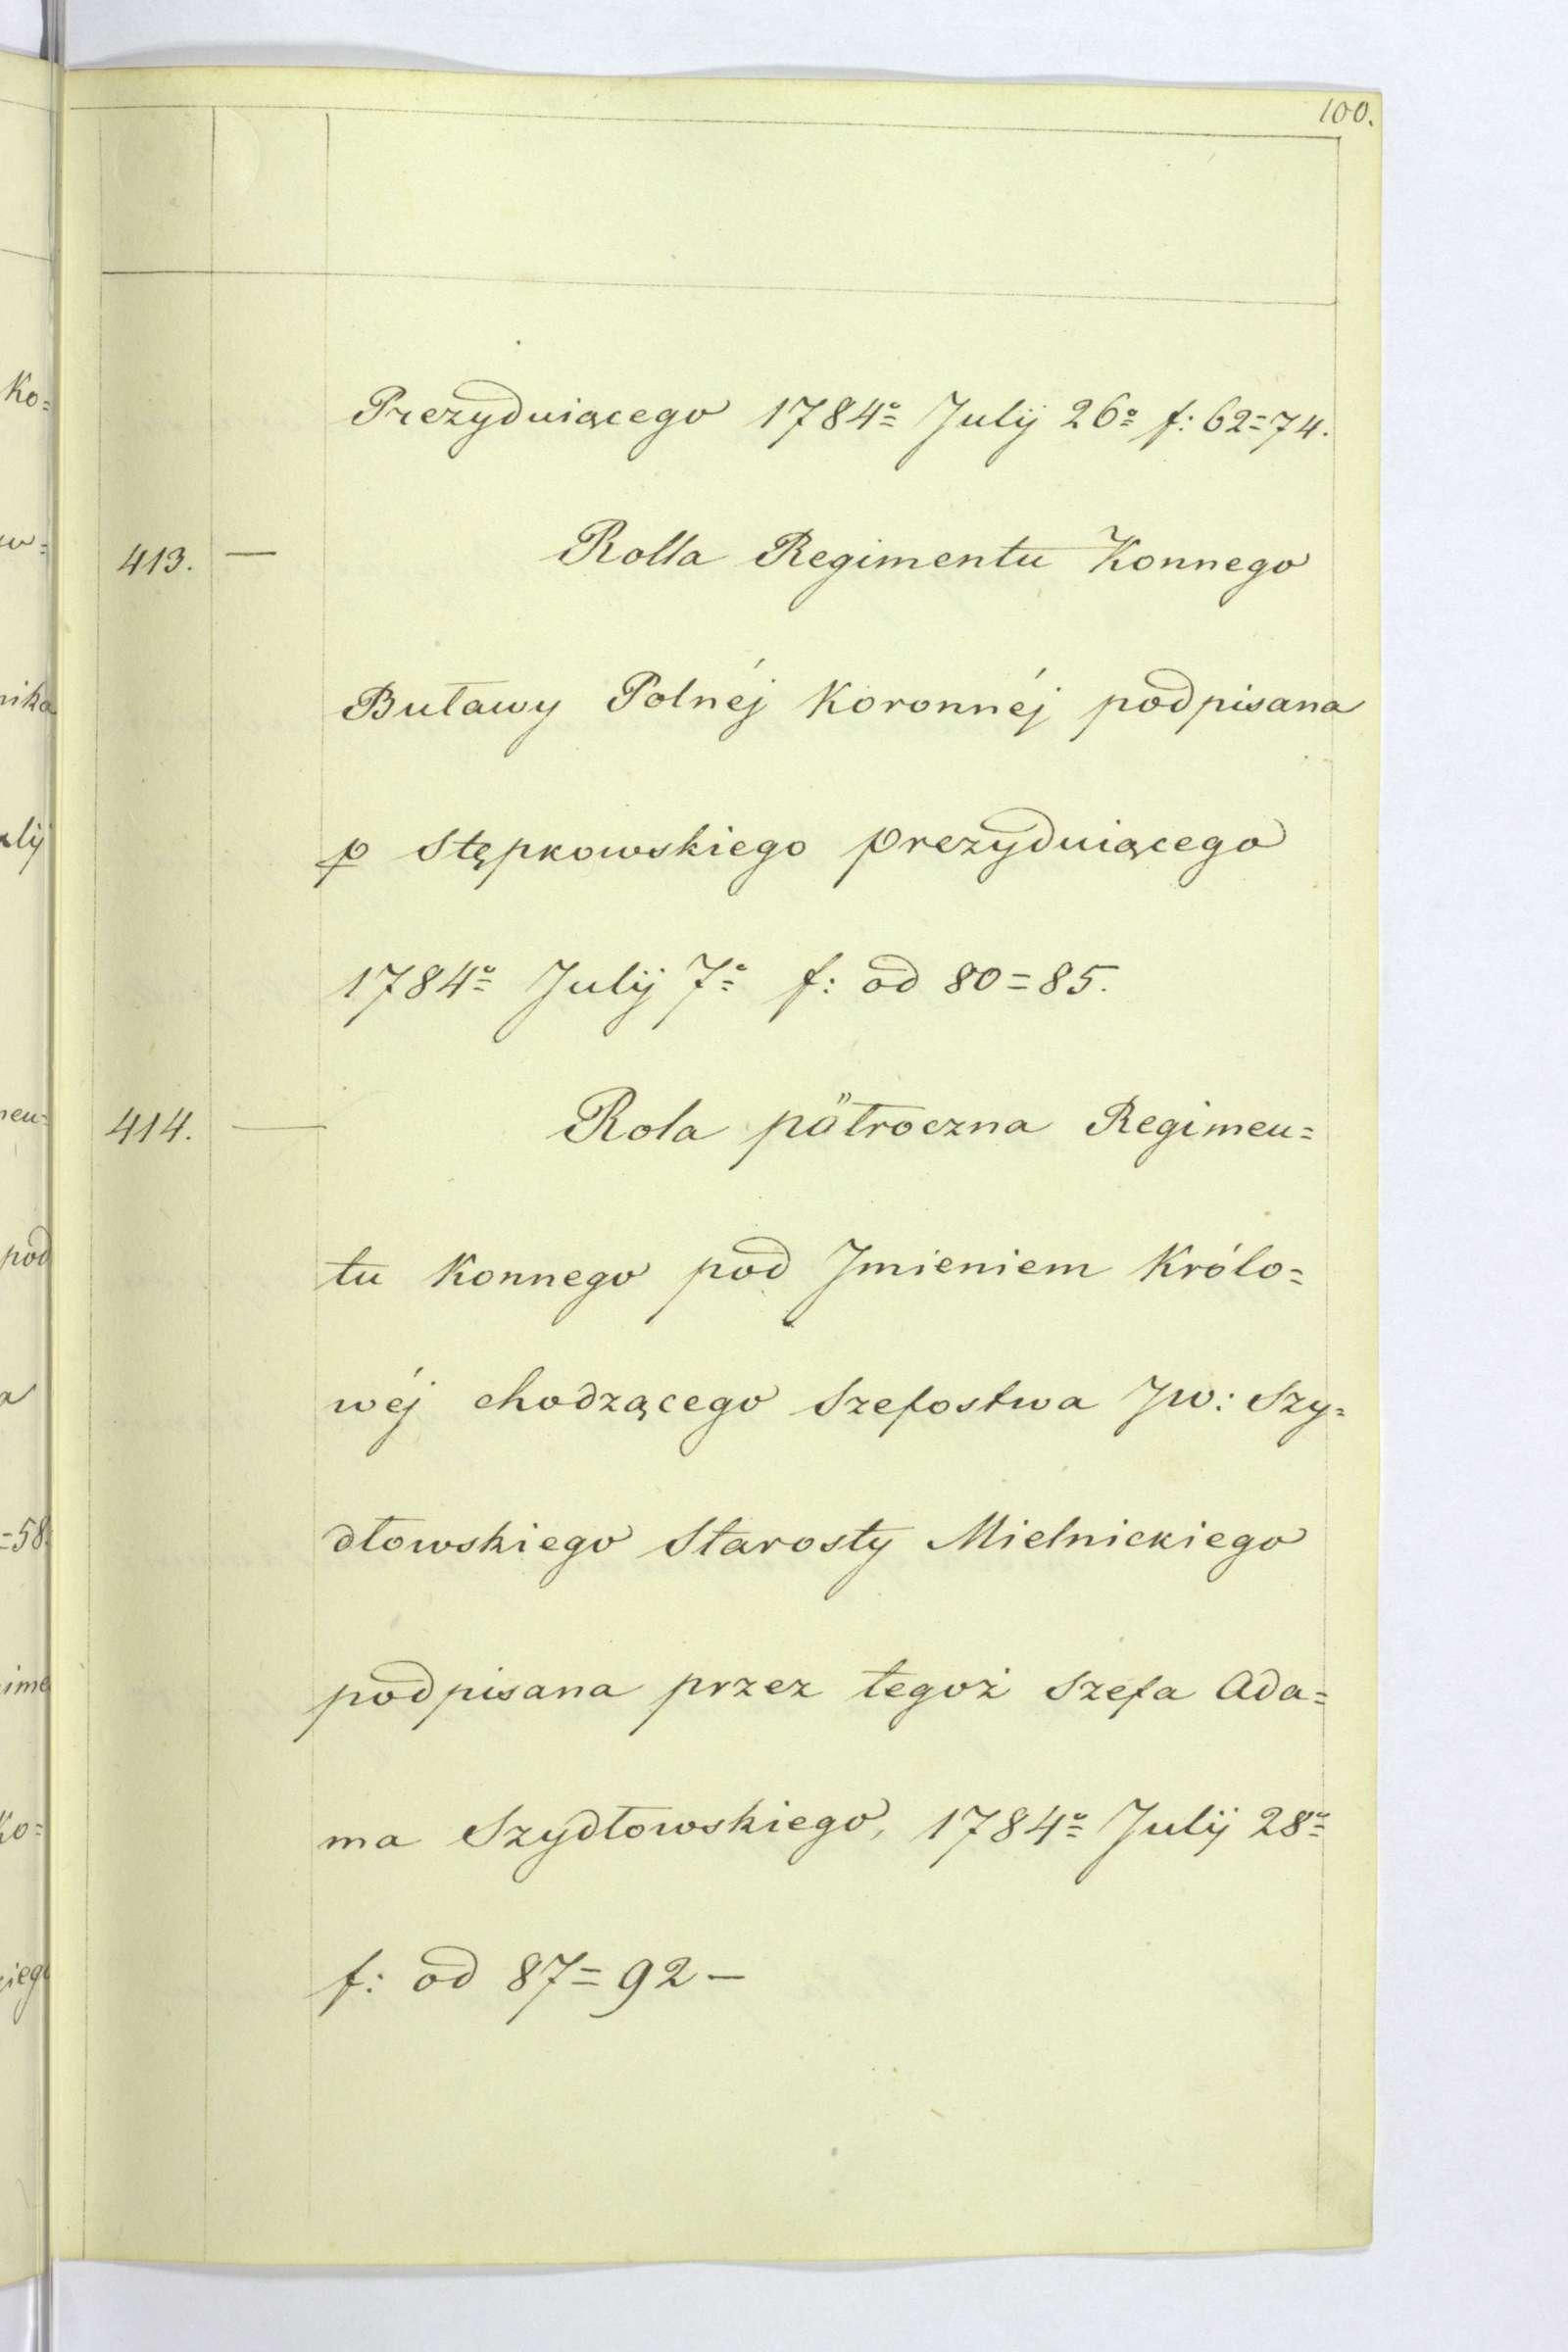 100.
Prezyduiącego 1784º Julij 26º f: 62=74.
413. — Rolla Regimentu Konnego
Buławy Polnéj Koronnéj podpisana
p Stępkowskiego Prezyduiącego
1784º Julij 7º f: od 80=85.
414. — Rola półroczna Regimen=
tu Konnego pod Jmieniem Królo=
wéj chodzącego Szefostwa JW: Szy=
dłowskiego Starosty Mielnickiego
podpisana przez tegoż Szefa Ada=
ma Szydłowskiego, 1784º Julij 28º
f: od 87=92 —